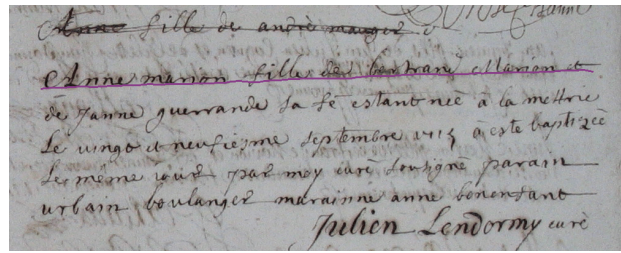 Anne fille de andré mauger
Anne marion fille de bertrand Marion et
de Janne guerrande sa fe estant née à la mettrie
Le vingt et neufiesme septembre 1715 à esté baptizée
Le même iour par moy curé sousigné parain
urbain boulanger marainne anne bonenfant
Julien Lendormy curé